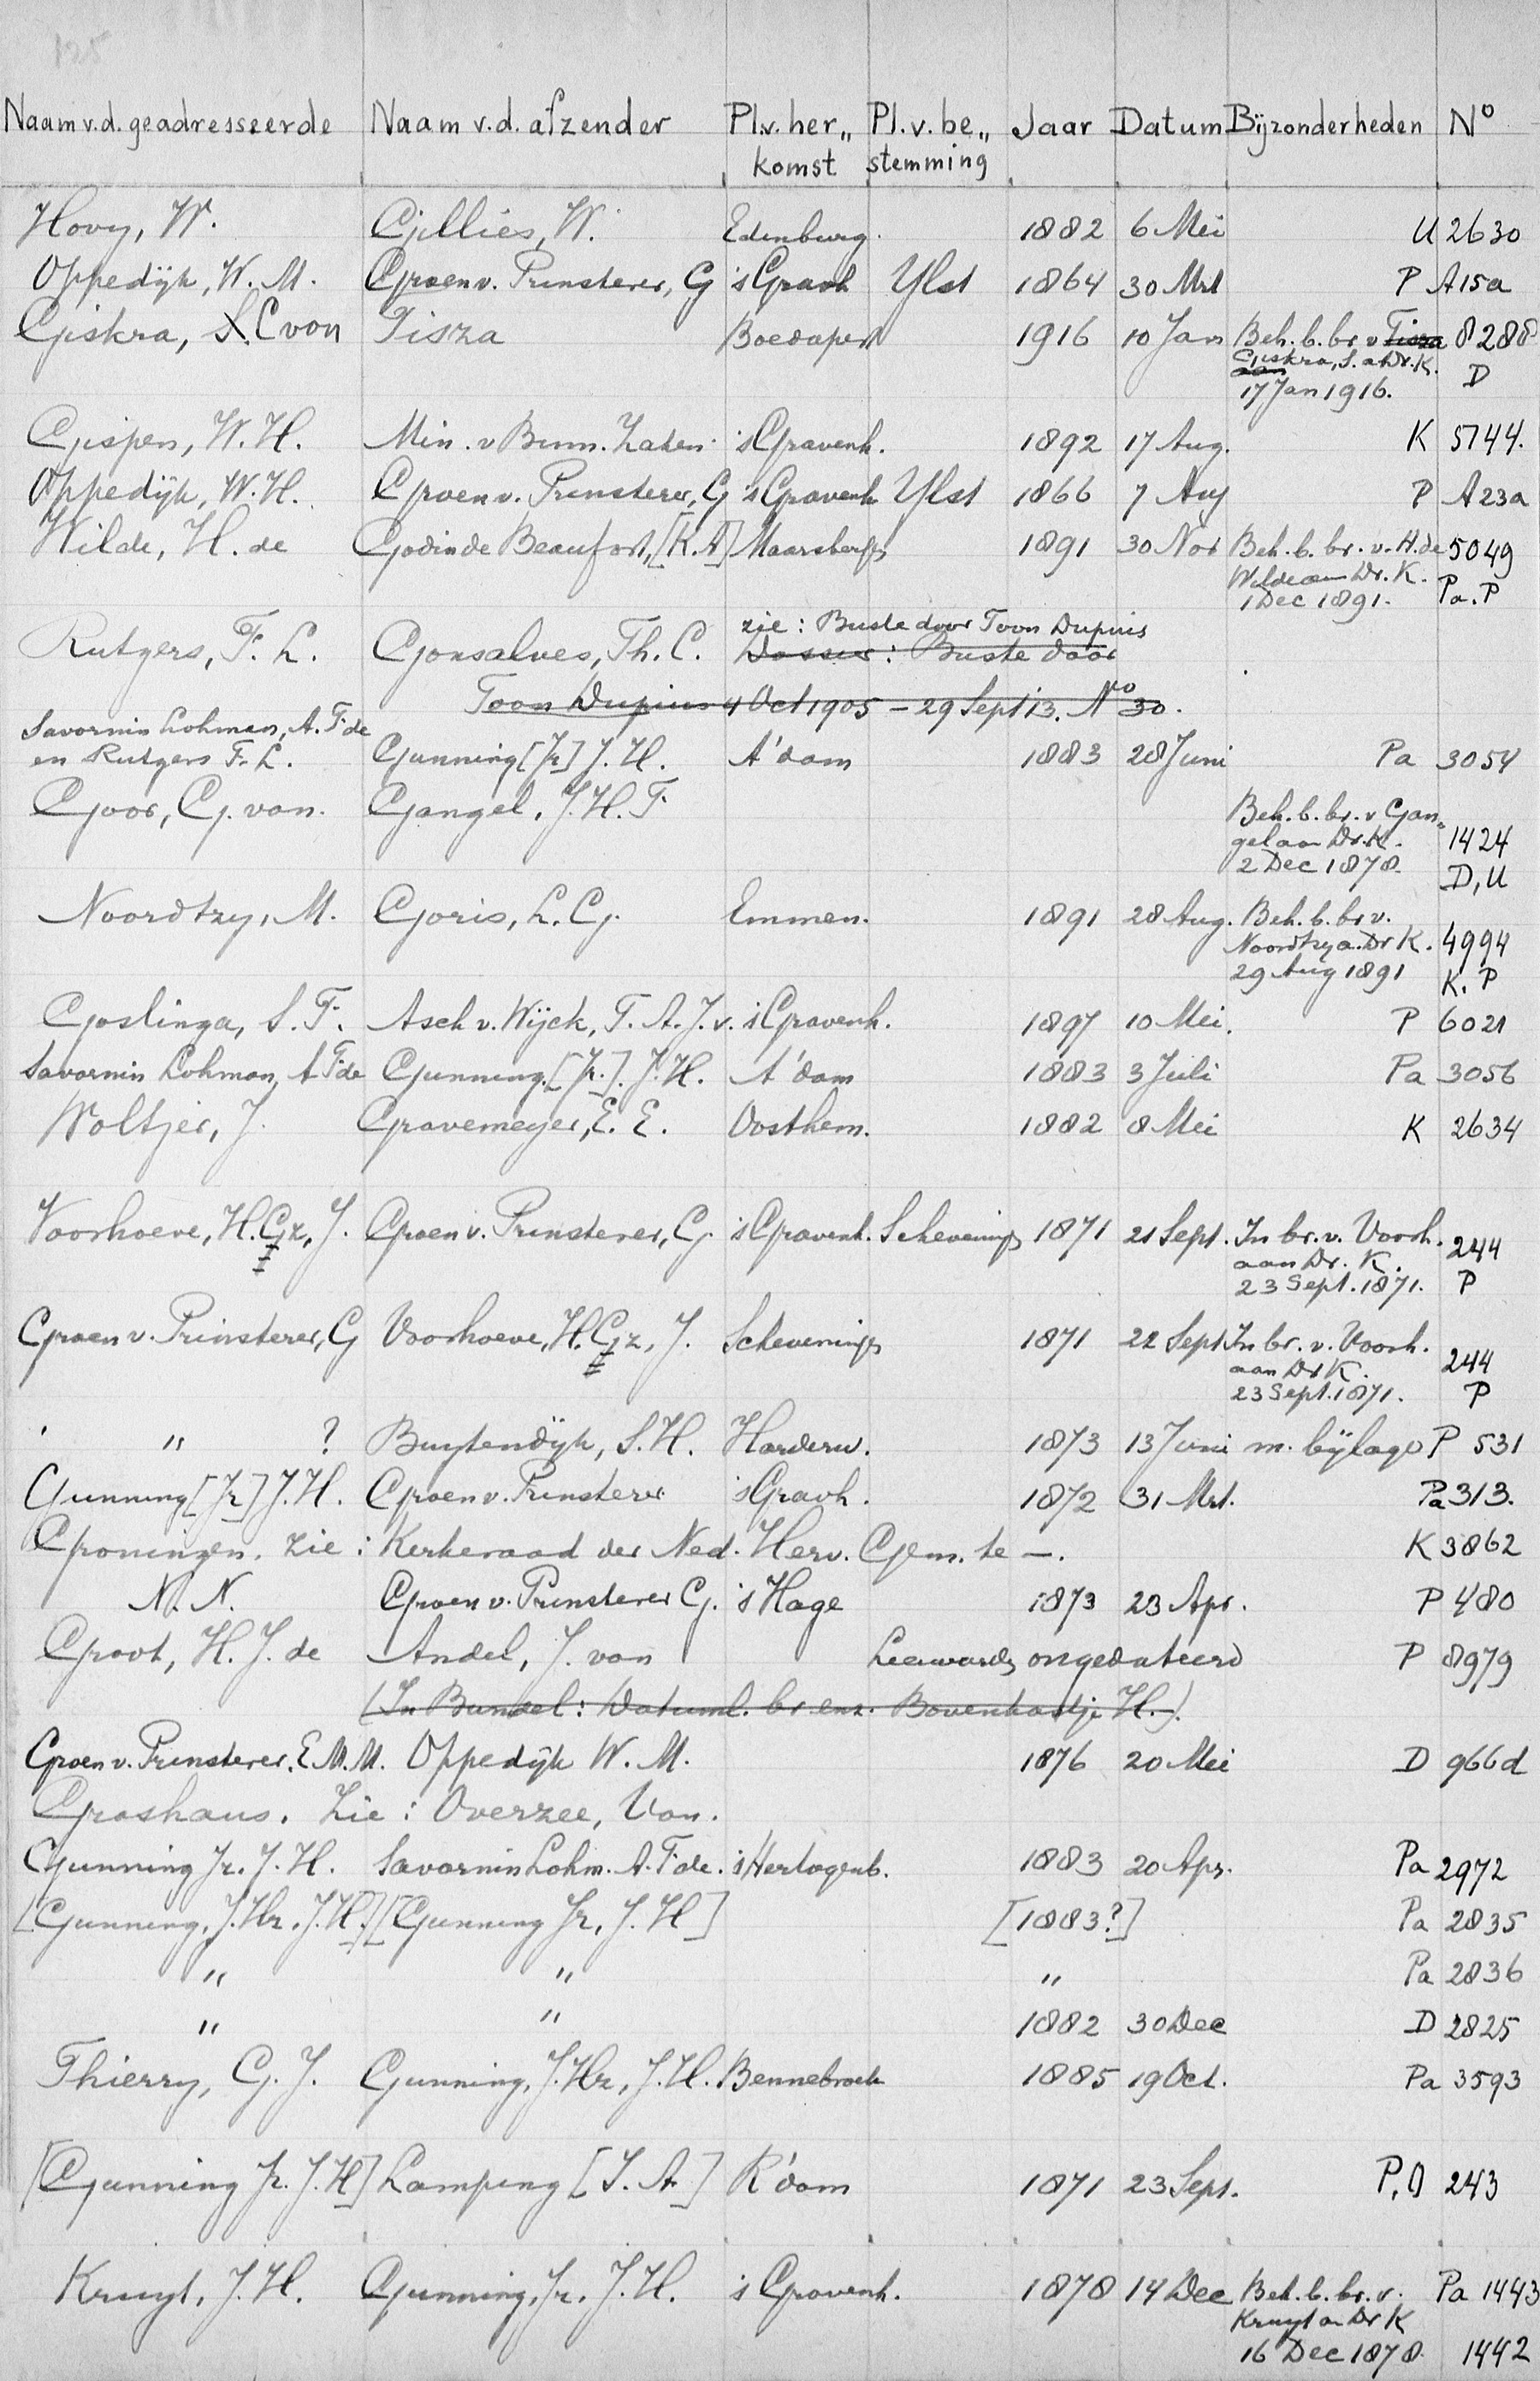 125
Naam v.d. geadresseerde Naam v.d. afzender Pl.v. her„ Pl. v. be„ Jaar Datum Bijzonderheden No
komst stemming
Hovy, W. Gillies, W. Edenburg. 1882 6 Mei U 2630
Oppedijk, W. M. Groen v. Prinsterer, G 's Gravh Ylst 1864 30 Mrt P A15a
Giskra, S. C von Tisza Boedapest 1916 10 Jan Beh. b. br. v Tisza 8288
Giskra, S. a Dr. K. D
aan
17 Jan 1916.
Gispen, W. H. Min. v Binn. Zaken 's Gravenh. 1892 17 Aug. K 5744.
Oppedijk, W. H. Groen v. Prinsterer, G 's Gravenh Ylst 1866 7 Aug P A23a
Wilde, H. de Godin de Beaufort, [K. A] Maarsbergen 1891 30 Nov Beh. b. br. v. H. de 5049
Wilde aan Dr. K. Pa. P
1 Dec 1891.
zie: Buste door Toon Dupuis
Rutgers, F. L. Gonsalves, Th. C. Dossier: Buste door
Toon Dupuis 4 Oct 1905 – 29 Sept 13. No 30.
Savornin Lohman, A. F. de
en Rutgers F. L. Gunning [Jr] J. H. A'dam 1883 28 Juni Pa 3054
Goor, G. van. Gangel, J. H. F Beh. b. br. v Gan„
gel aan Dr. K. 1424
2 Dec 1878. D, U
Noordtzy, M. Goris, L. G. Emmen. 1891 28 Aug. Beh. b. br v.
Noordtzy a. Dr K. 4994
29 Aug 1891 K. P
Goslinga, S. F. Asch v. Wijck, T. A. J. v. 's Gravenh. 1897 10 Mei. P 6021
Savornin Lohman, A F de Gunning. [Jr.]. J. H. A'dam 1883 3 Juli Pa 3056
Woltjer, J. Gravemeyer, E. E. Oosthem. 1882 8 Mei K 2634
Voorhoeve, H. Gz, J. Groen v. Prinsterer, G. 's Gravenh. Schevening 1871 21 Sept. In br. v. Voorh. 244
aan Dr. K. P
23 Sept. 1871.
Groen v. Prinsterer, G Voorhoeve, H. Gz, J. Schevening 1871 22 Sept In br. v. Voorh. 244
aan Dr K. P
23 Sept. 1871.
" " ? Buytendijk, S. H. Harderw. 1873 13 Juni m. bijlage P 531
Gunning [Jr] J. H. Groen v. Prinsterer 's Gravh. 1872 31 Mrt. Pa 313.
Groningen. Zie: Kerkeraad der Ned. Herv. Gem. te –. K 3862
N. N. Groen v. Prinsterer G. 's Hage 1873 23 Apr. P 480
Groot, H. J. de Andel, J. van Leeuward ongedateerd P 8979
(In Bundel: Datuml. br enz. Bovenkastje H.)
Groen v. Prinsterer, E. M. M. Oppedijk W. M. 1876 20 Mei D 966d
Groshaus. Zie: Overzee, Van.
Gunning Jr. J. H. Savornin Lohm. A. F. de. 's Hertogenb. 1883 20 Apr. Pa 2972
[Gunning, J. Hz. J. H.] [Gunning Jr, J. H] [1883?] Pa 2835
" " " Pa 2836
" " 1882 30 Dec D 2825
Thierry, G. J. Gunning, J. Hz, J. H. Bennebroek 1885 19 Oct. Pa 3593
[Gunning Jr. J. H] Lamping [J. A.] R'dam 1871 23 Sept. P, D 243
Kruyt, J. H. Gunning, Jr. J. H. 's Gravenh. 1878 14 Dec Beh. b. br. v. Pa 1443
Kruyt a Dr K
16 Dec 1878. 1442